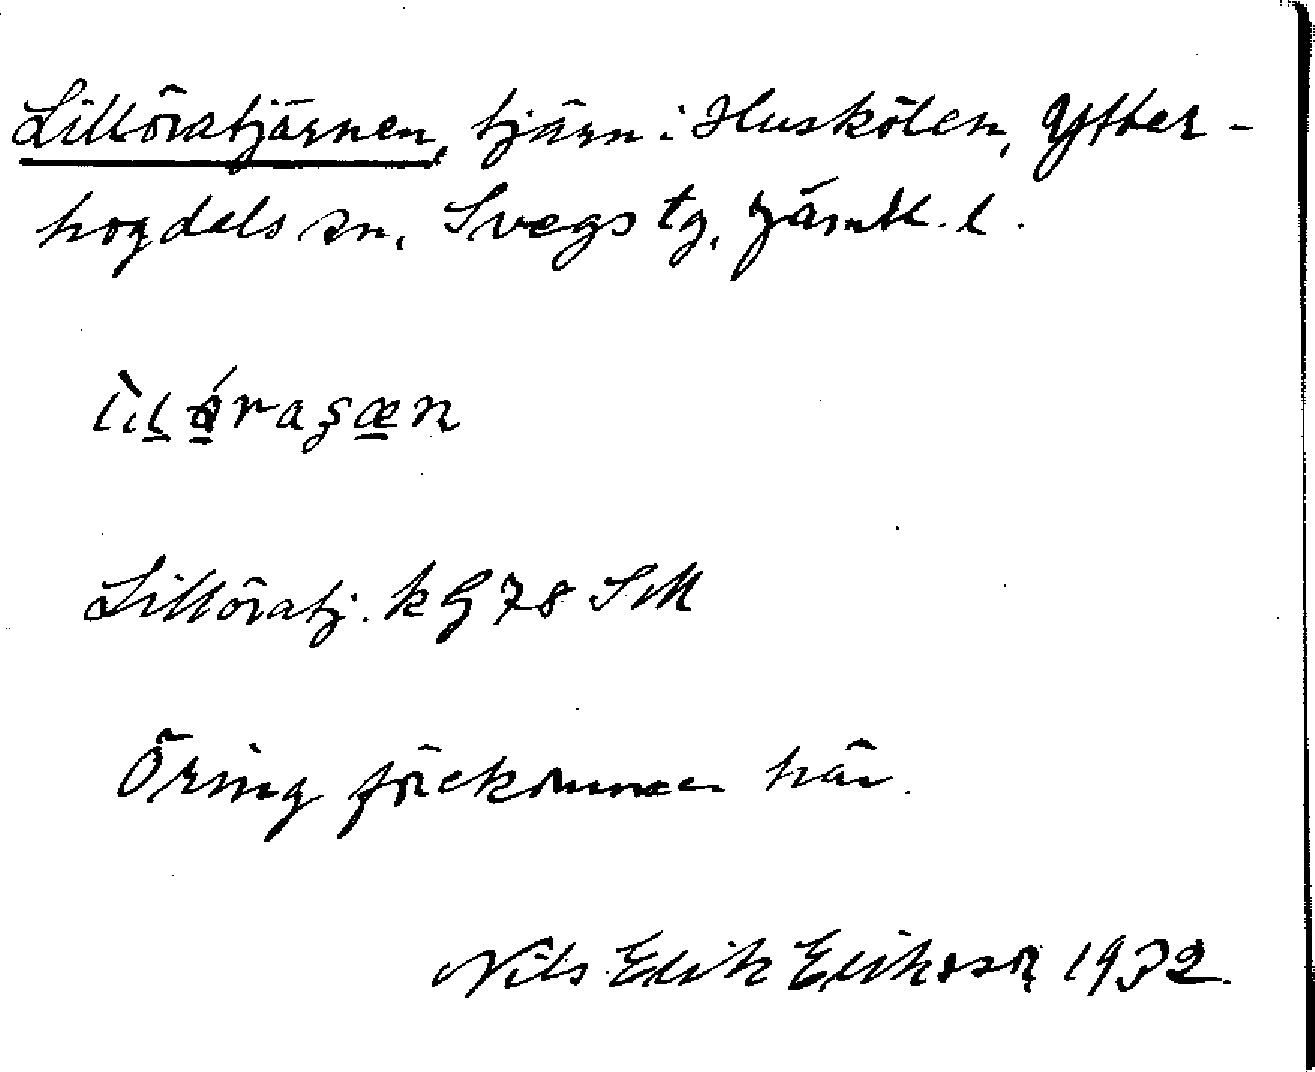 Lillöratjärnen, tjärn i Huskölen, Ytter-
hogdals sn, Svegs tg, Jämtl. l.
Lillöratj. k G 78 SM
Öring förekommer här.
Nils Erik Eriksson 1932